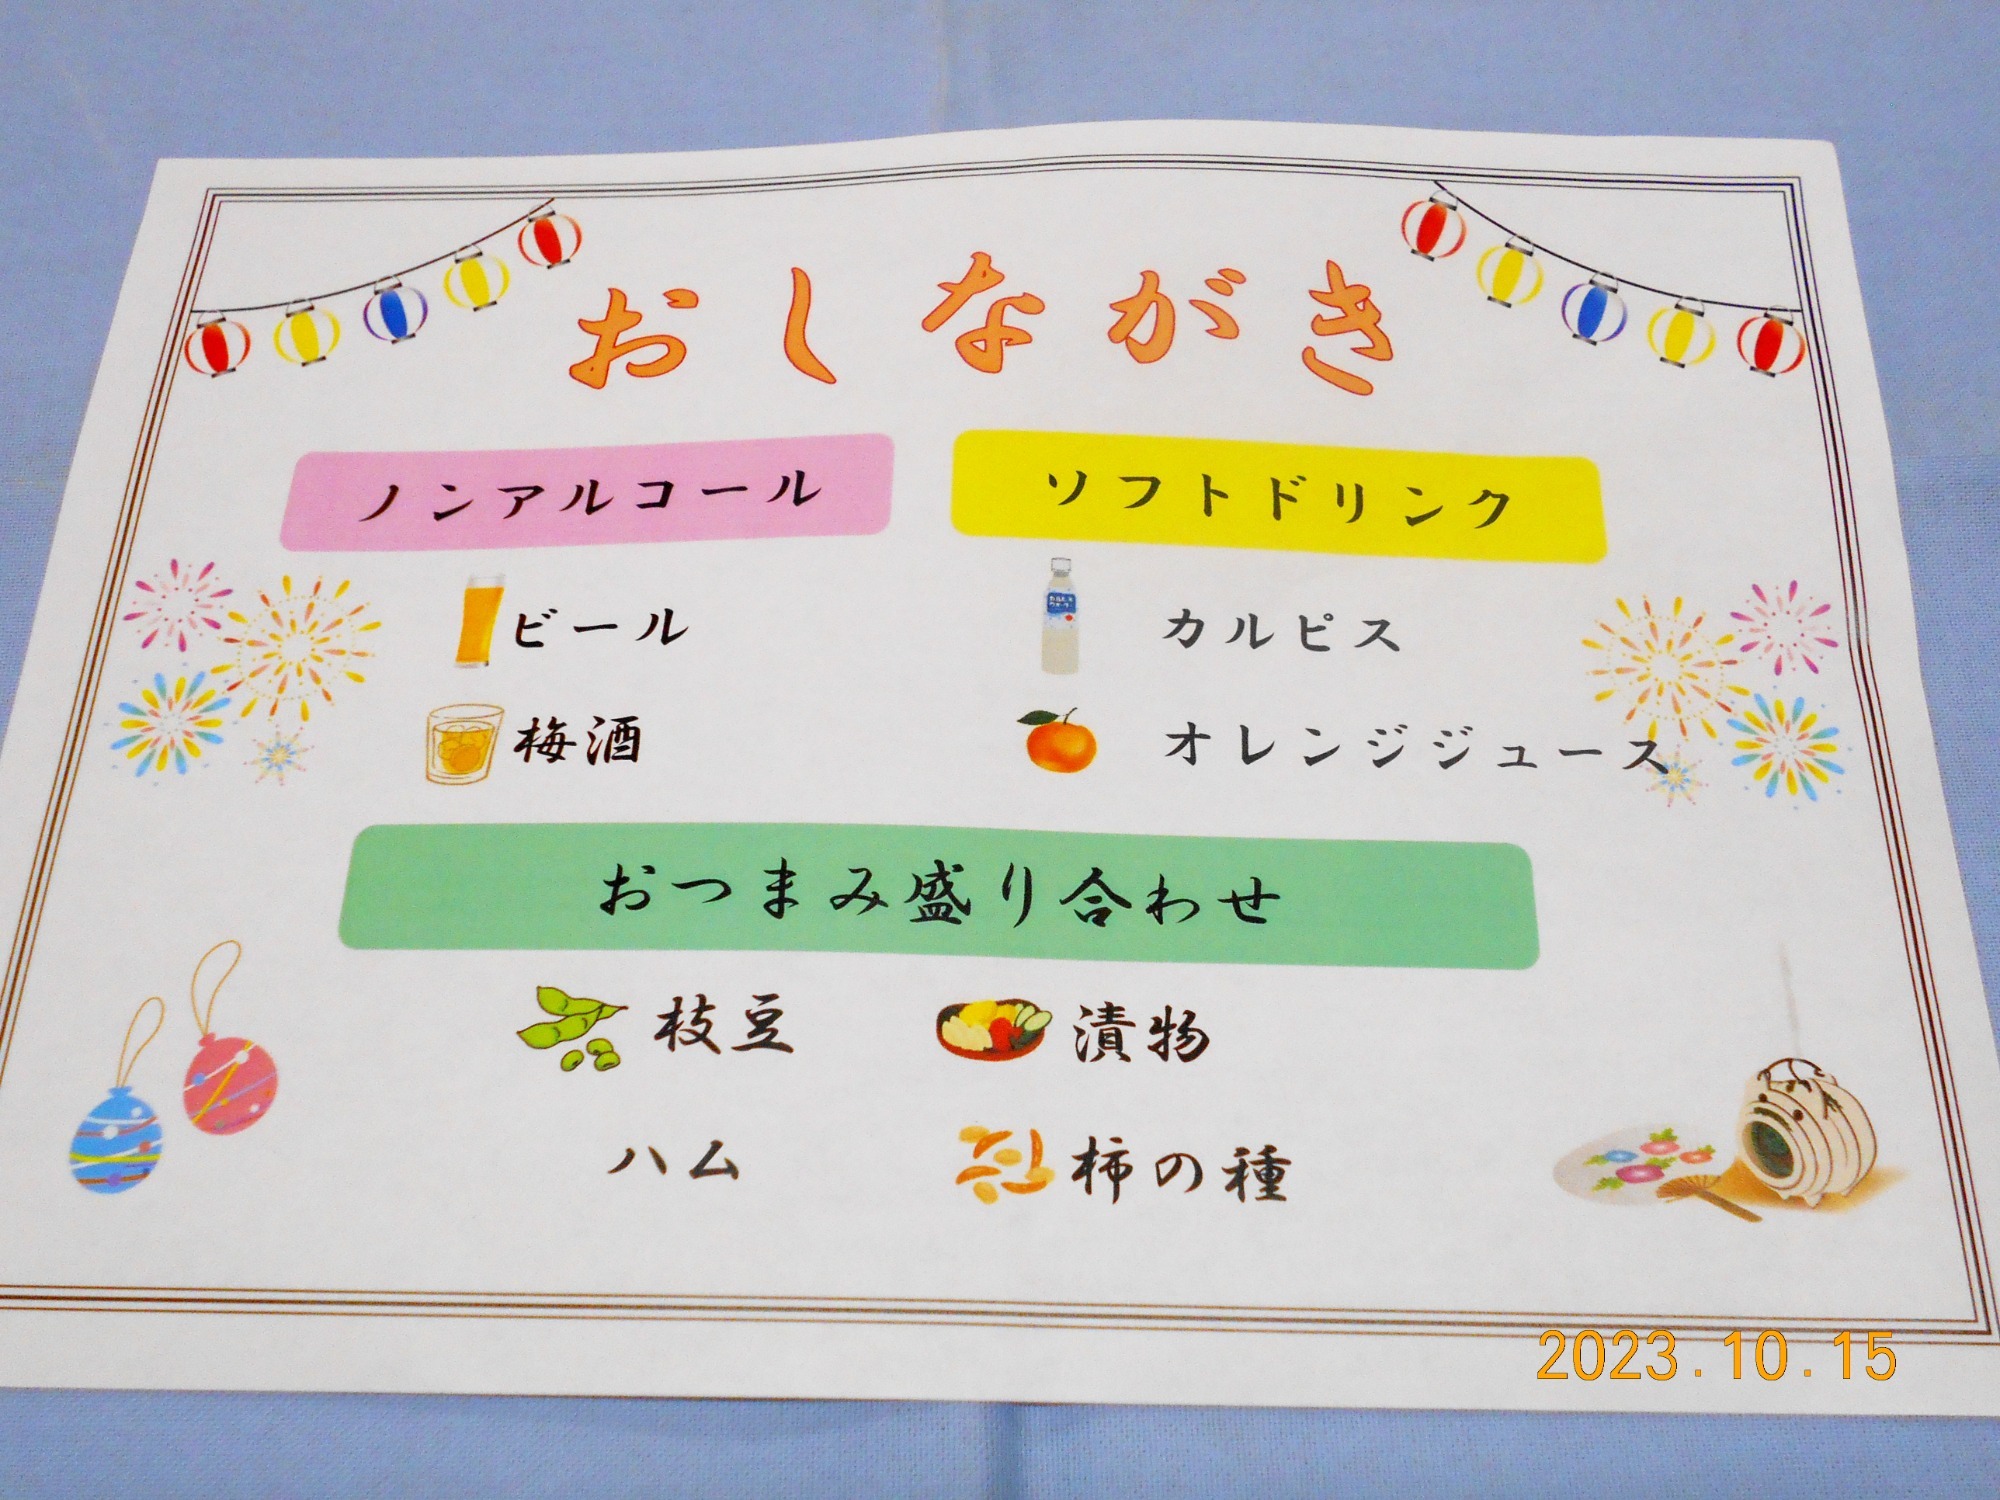 おしながき
ノンアルコール
ソフトドリンク
ビール
カルピス
梅酒
オレンジジュース
おつまみ盛り合わせ
枝豆
漬物
ハム
柿の種
2023.10.15